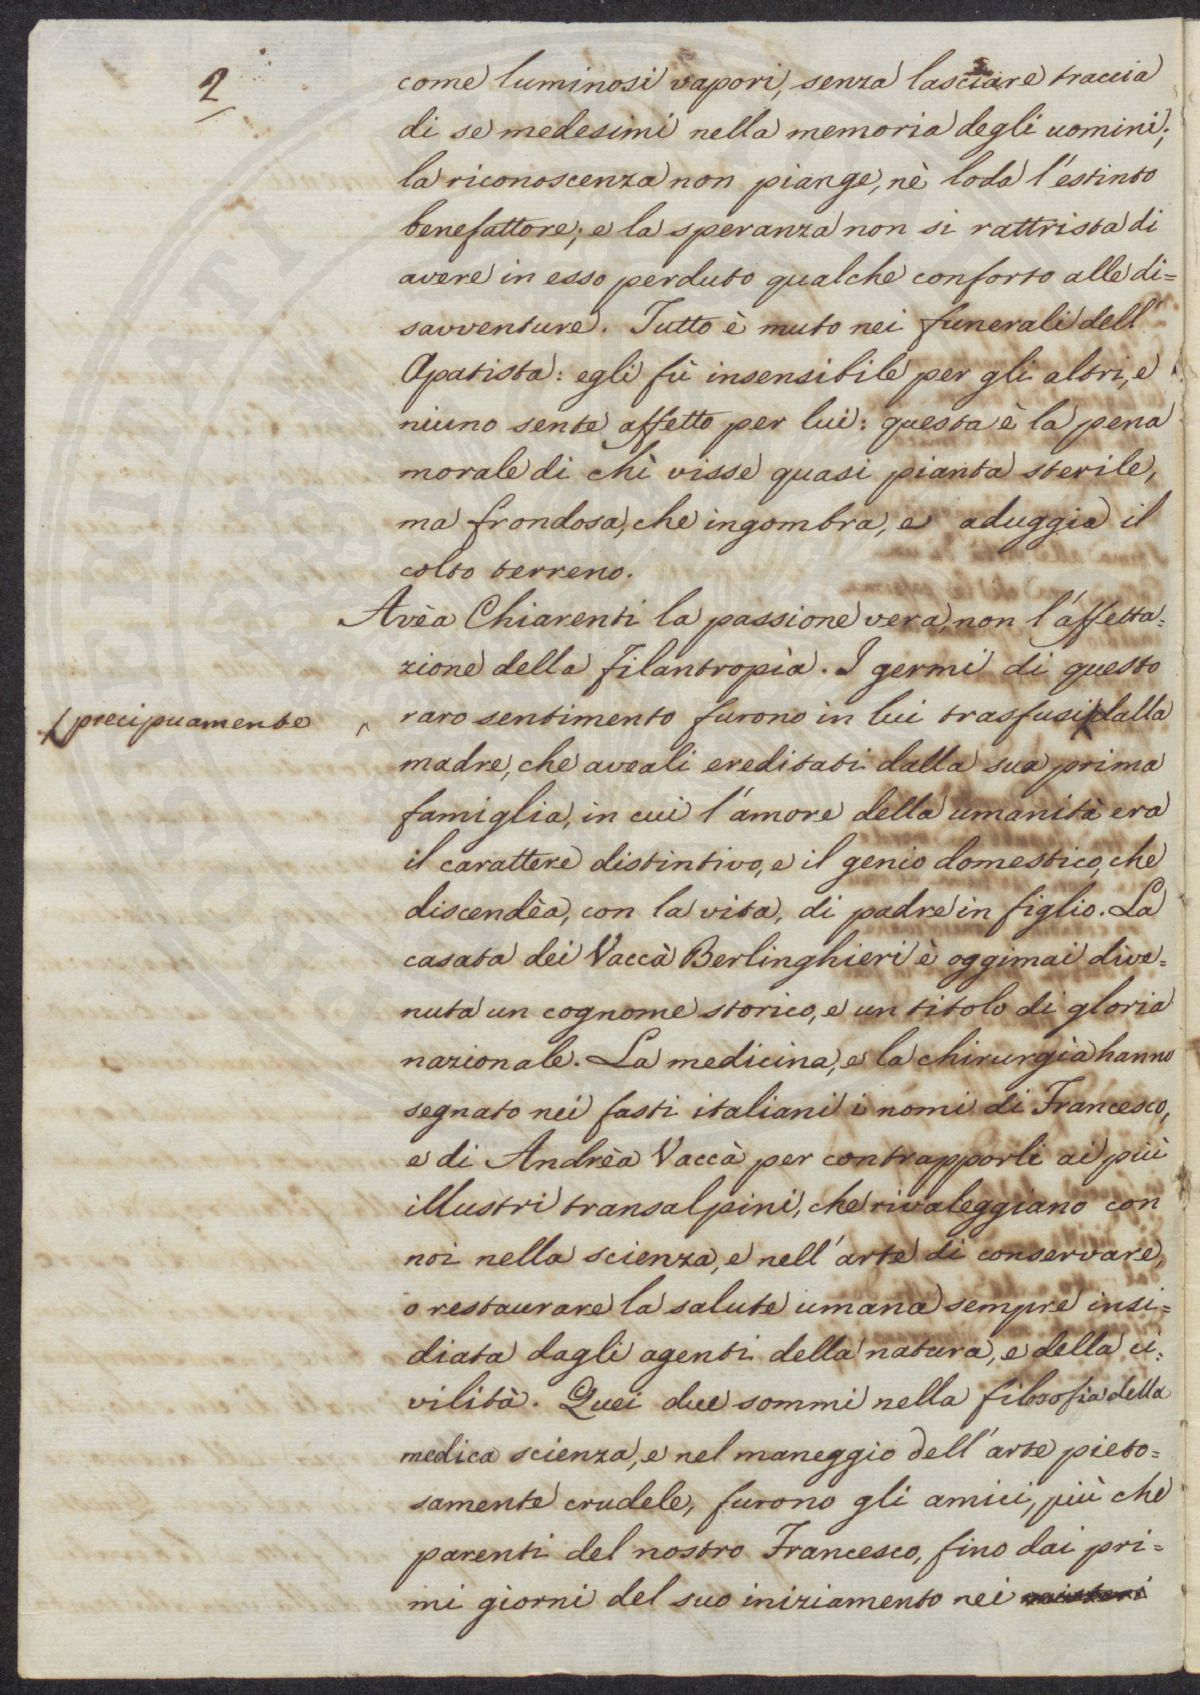 2
come luminosi vapori, senza lasciare traccia
di se medesimi nella memoria degli uomini;
la riconoscenza non piange, nè loda l'estinto
benefattore; e la speranza non si rattrista di
avere in esso perduto qualche conforto alle di=
savventure. Tutto è muto nei funerali dell'
Apatista: egli fù insensibile per gli altri, e
niuno sente affetto per lui: questa è la pena
morale di chì visse quasi pianta sterile,
ma frondosa, che ingombra, e aduggia il
colto terreno.
Avèa Chiarenti la passione vera, non l'affetta=
zione della Filantropìa. I germi di questo
raro sentimento furono in lui trasfusi dalla
precipuamente
madre, che aveali ereditati dalla sua prima
famiglia, in cui l'amore della umanità era
il carattere distintivo, e il genio domestico, che
discendèa, con la vita, di padre in figlio. La
casata dei Vaccà Berlinghieri è oggimai dive=
nuta un cognome storico, e un titolo di gloria
nazionale. La medicina, e la chirurgìa hanno
segnato nei fasti italiani i nomi di Francesco,
e di Andrèa Vaccà per contrapporli ai più
illustri transalpini, che rivaleggiano con
noi nella scienza, e nell'arte di conservare,
o restaurare la salute umana sempre insi=
diata dagli agenti della natura, e della ci=
viltà. Quei due sommi nella filosofia della
medica scienza, e nel maneggio dell'arte pieto=
samente crudele, furono gli amici, più che
parenti del nostro Francesco, fino dai pri=
mi giorni del suo iniziamento nei misteri